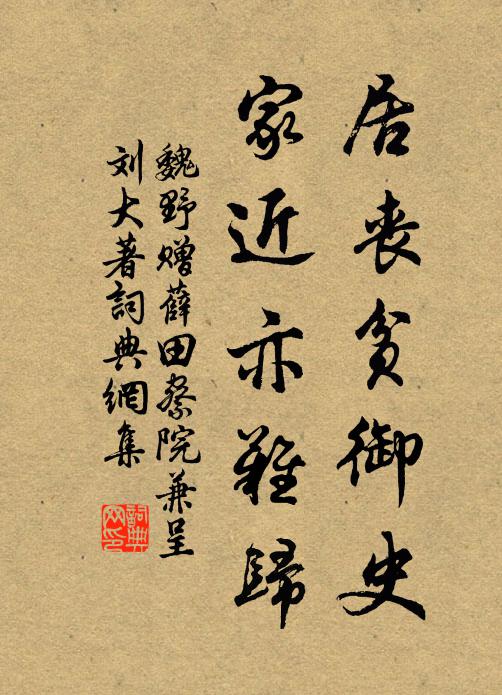 居丧贫御史
家近亦难歸
魏野赠薛田察院兼呈
刘大著詞典網集
詞典网印